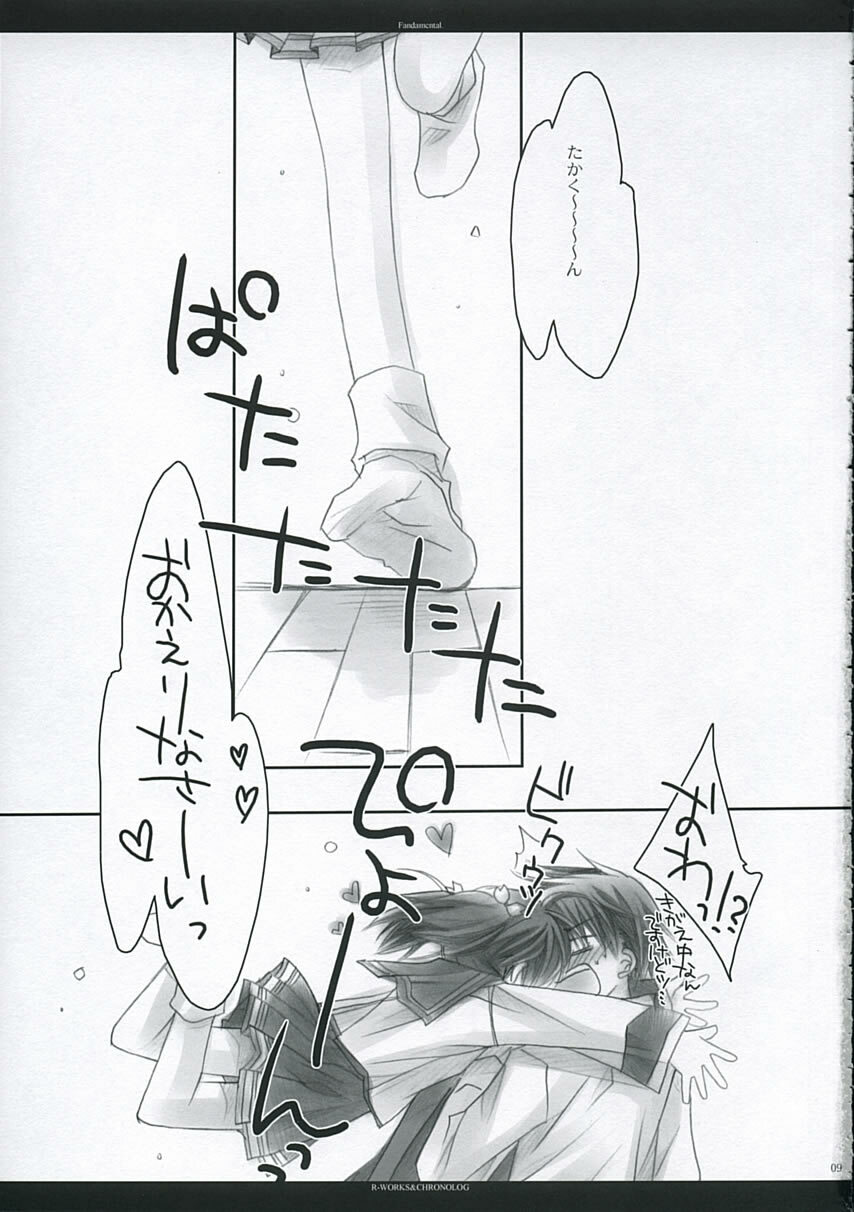 Fandamental.
たかく～～～～ん
ぱたたたた
おかえりなさーいっ
ぴょーんっ
ビクウッ
なわっ!?
きがえ中なん
ですけどッ…
09
R-WORKS&CHRONOLOG